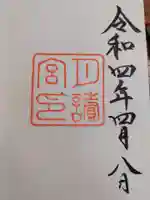 令和四年四月八日
月讀宮印